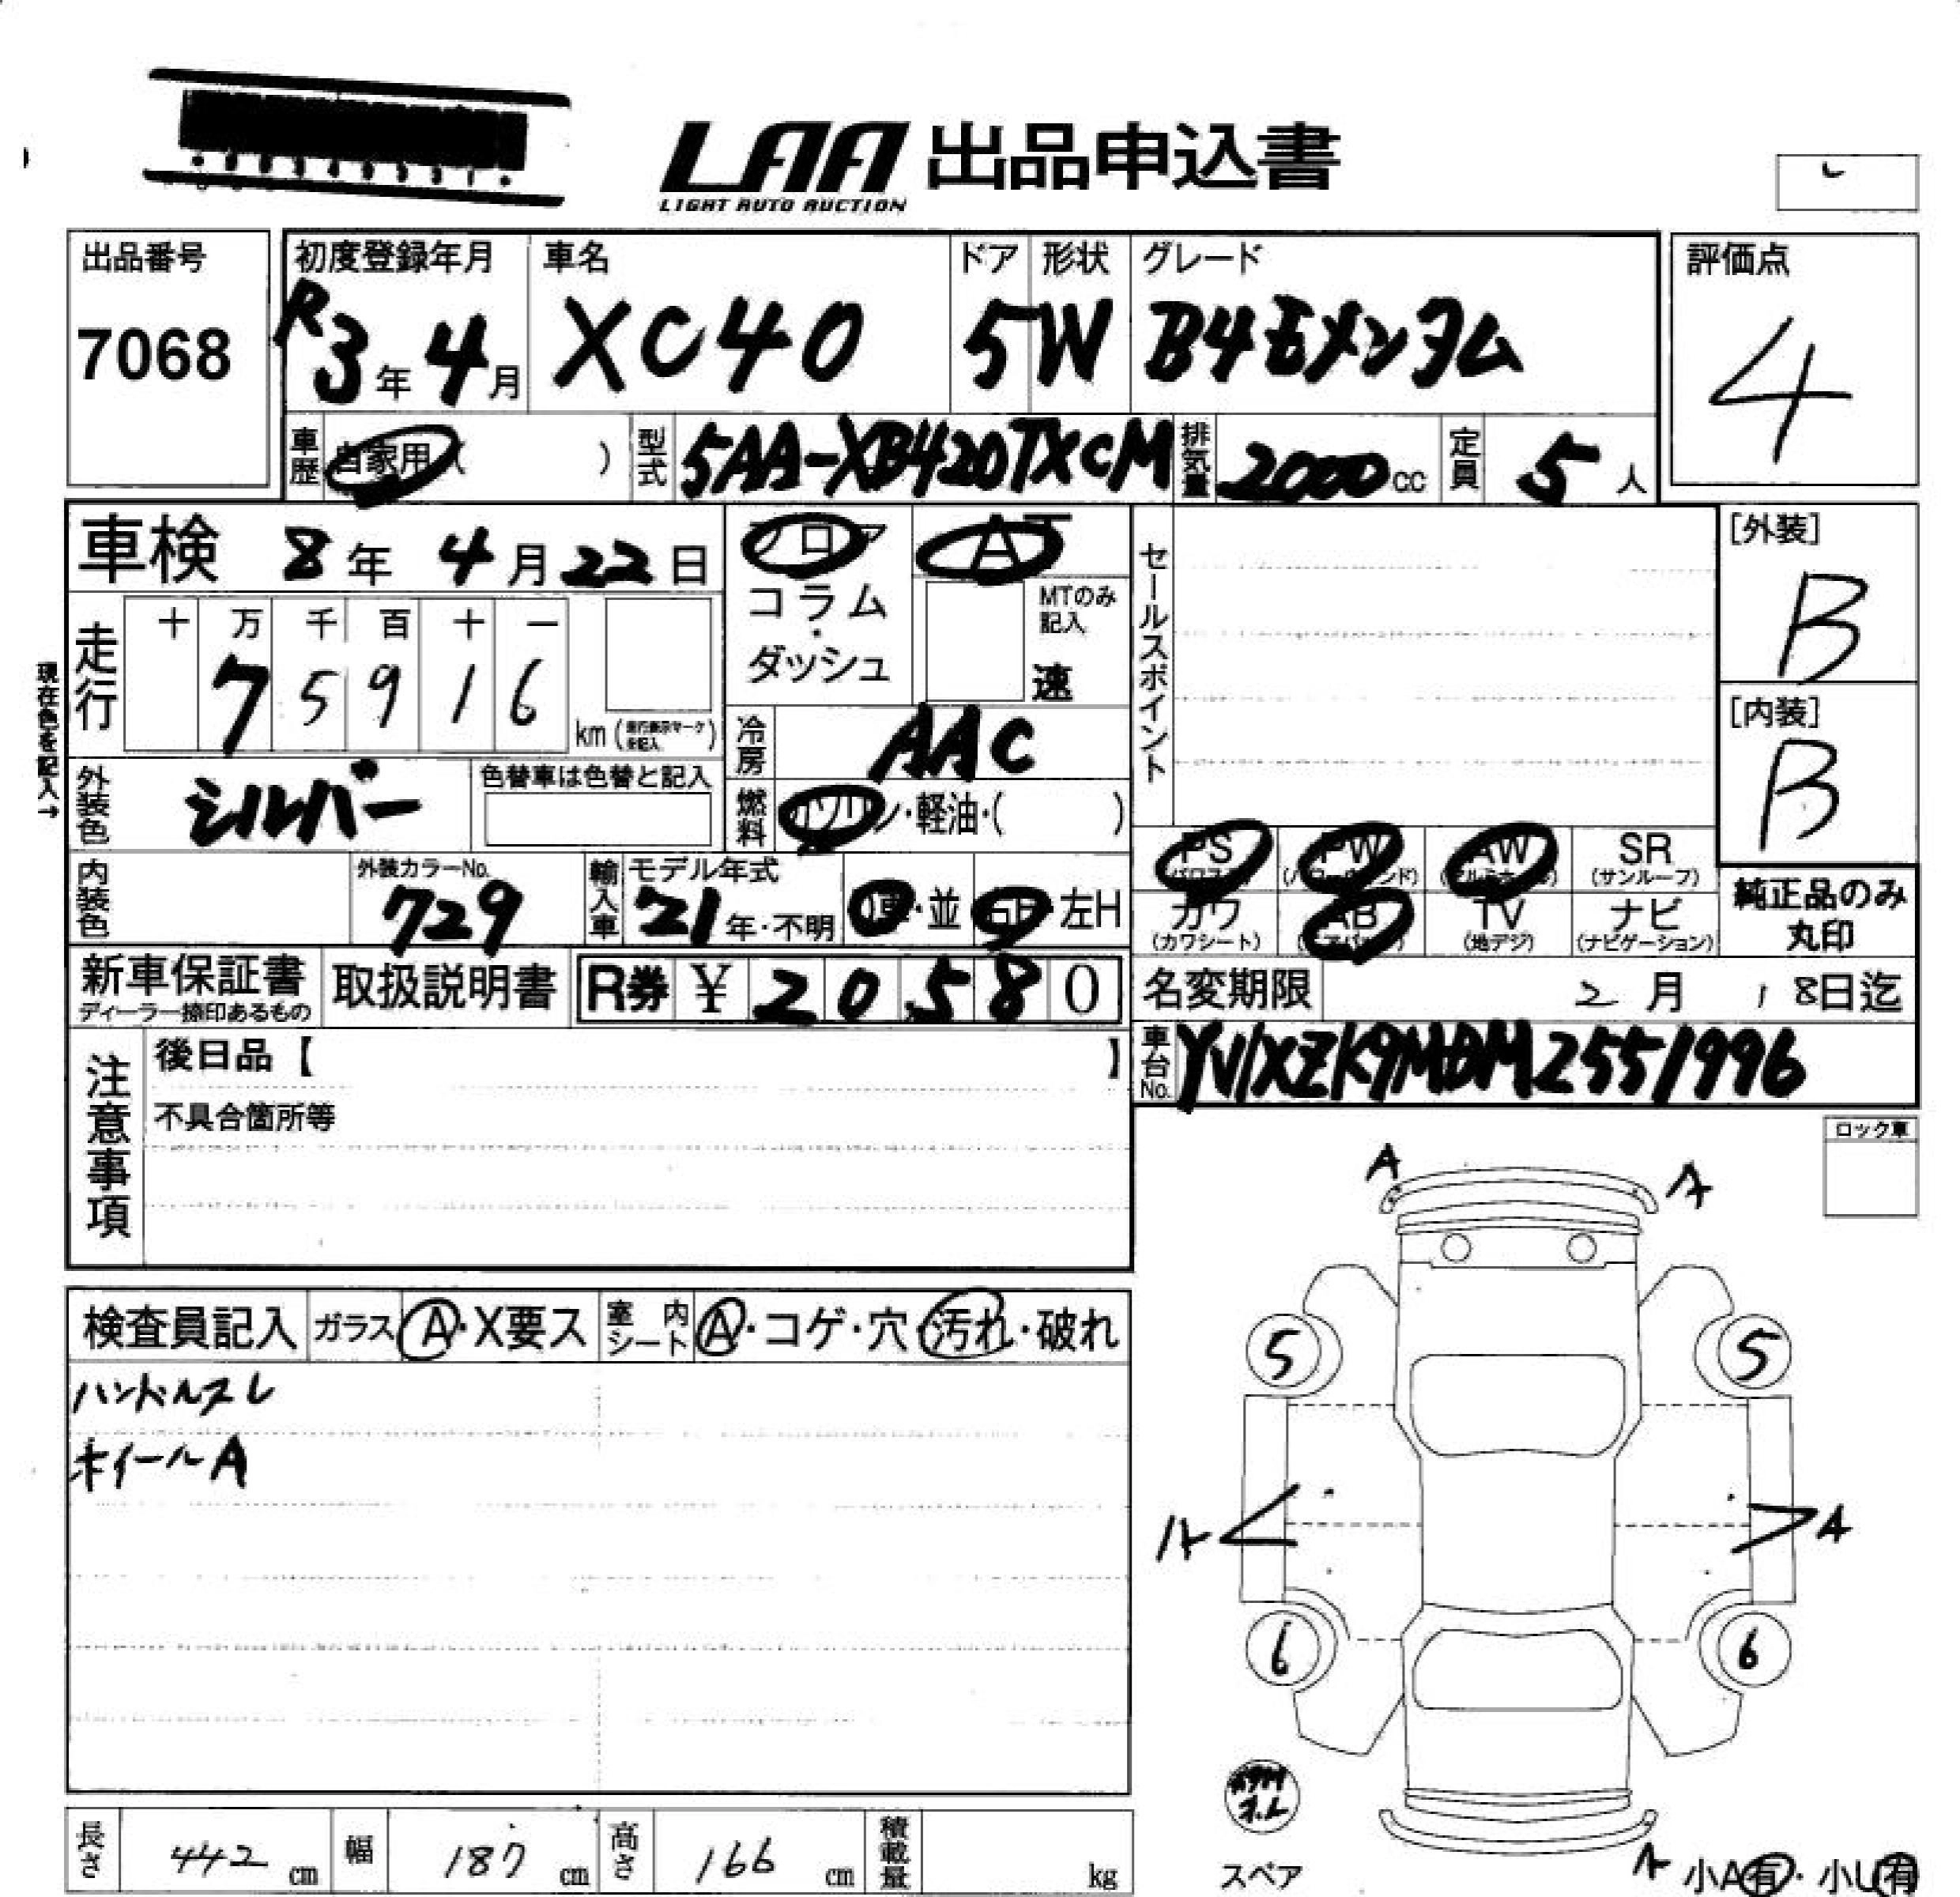 LAA 出品申込書
LIGHT AUTO AUCTION
出品番号
7068
初度登録年月
R3年4月
車名
XC40
ドア
5
形状
W
グレード
B4モメンタム
評価点
4
車歴 自家用 ( )
型式 5AA-XB420TXCM
排気量 2000cc
定員 5人
車検 8年4月22日
フロア・コラム・ダッシュ
AT
MTのみ記入
速
セールスポイント
[外装]
B
[内装]
B
現在色を記入→
走行
十 万 千 百 十 一
7 5 9 1 6
km (走行表示マークを記入)
冷房 AAC
外装色 シルバー
色替車は色替と記入
燃料 ガソリン・軽油・( )
PS (パワステ)
PW (パワーウインド)
AW (アルミホイール)
SR (サンルーフ)
内装色
外装カラーNo.
729
輸入車
モデル年式
21年・不明
D車・並
右H・左H
カワ (カワシート)
AB (エアバッグ)
TV (地デジ)
ナビ (ナビゲーション)
純正品のみ丸印
新車保証書
ディーラー捺印あるもの
取扱説明書
R券 ¥ 2 0 5 8 0
名変期限 2月18日迄
車台No. YV1XZK9MDM2551996
注意事項
後日品【 】
不具合箇所等
ロック車
A A
検査員記入
ガラス A・X要ス
室内シート A・コゲ・穴・汚れ・破れ
ハンドルスレ
ホイールA
5 5
A A
6 6
スペア
A
小A有・小U有
長さ 442 cm
幅 187 cm
高さ 166 cm
積載量 kg